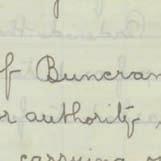 of Buncran
or authority
carrying